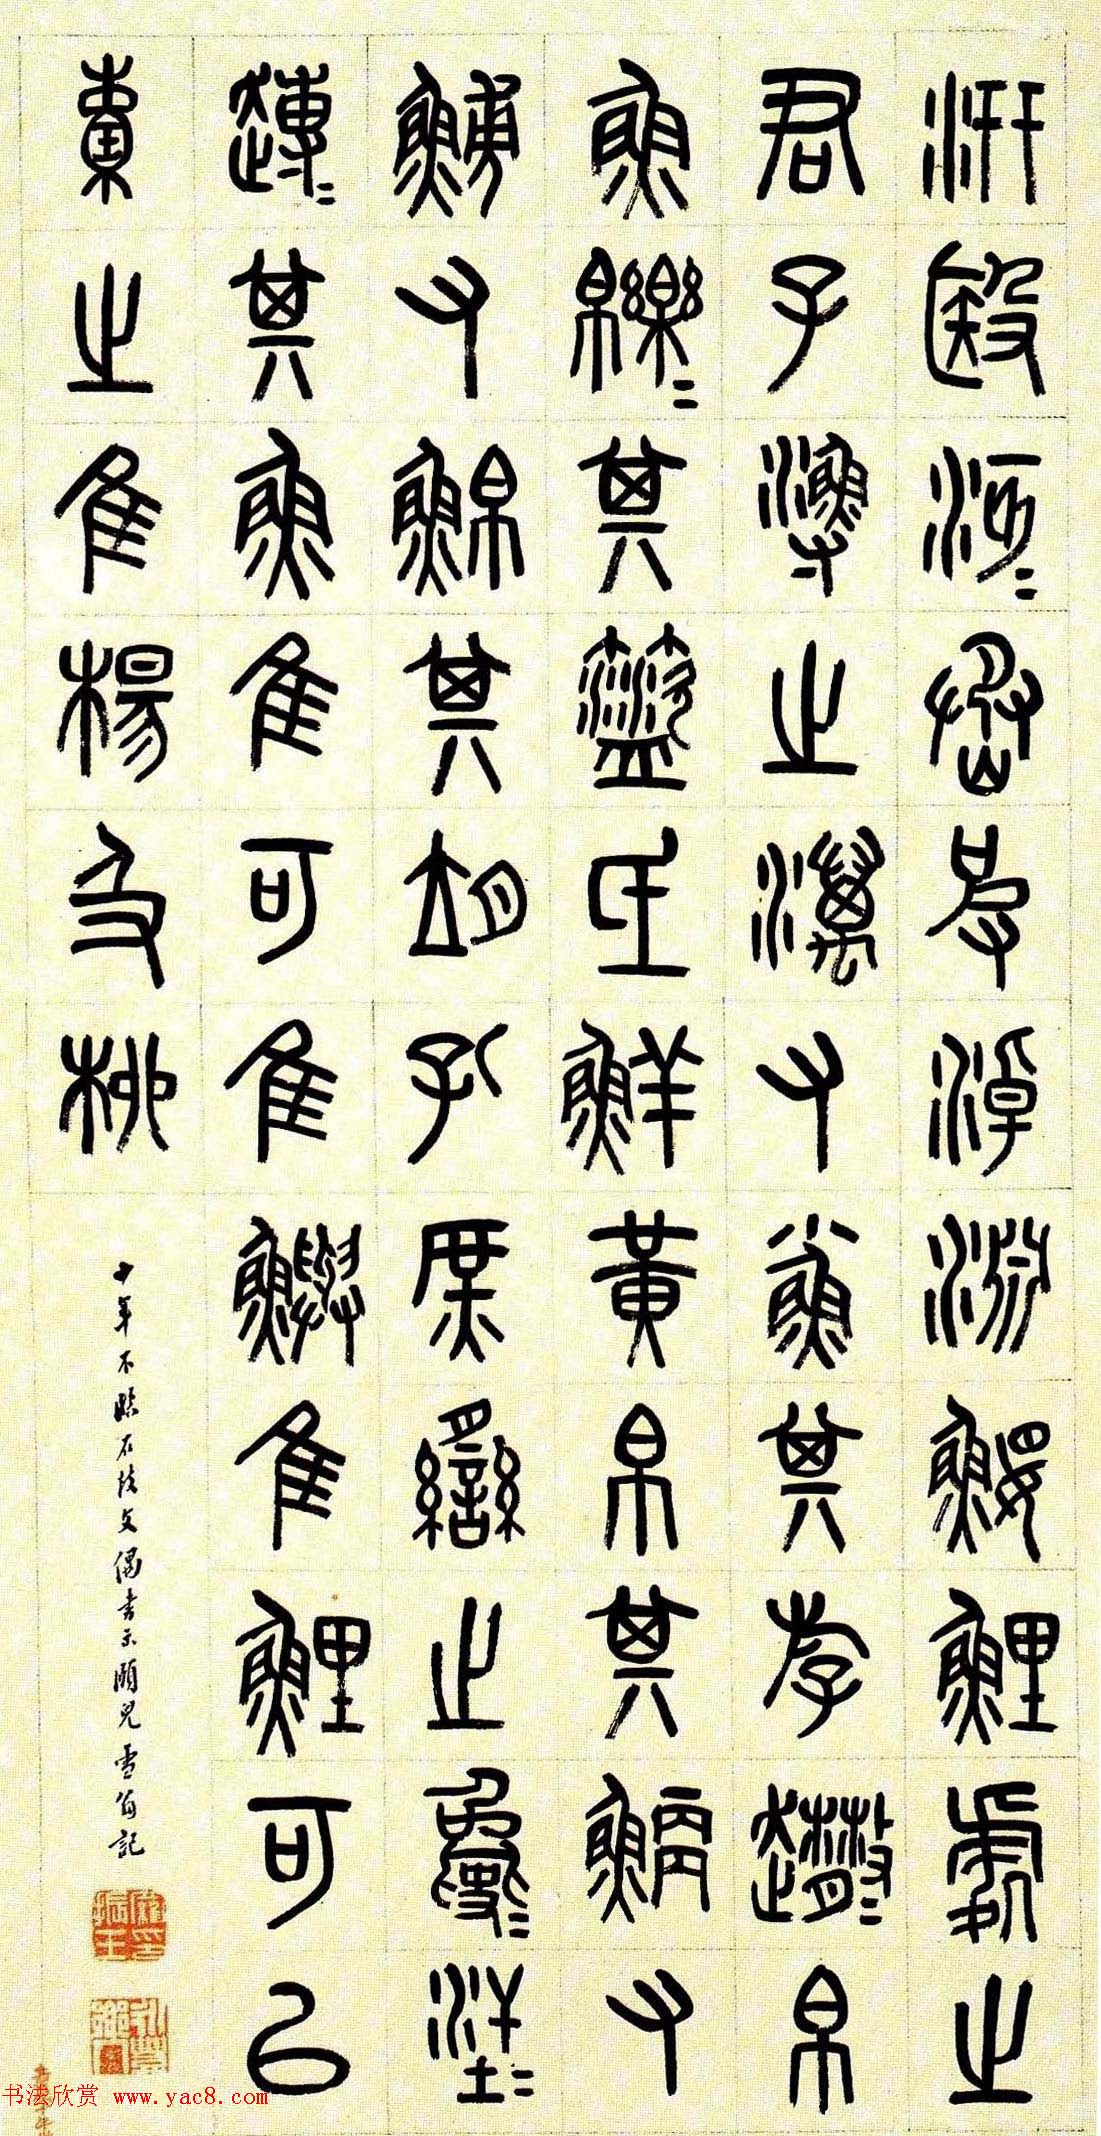 汧殹沔＝丞皮淖淵鰋鯉處之
君子漁之澫又鯋其斿趣＝帛
魚皪＝其盜氐鮮黃帛其鯾又
䱋又鮊其胡孔庶臠之＝汗＝
趍＝其魚隹可隹鱮隹鯉可以
橐之隹楊及柳
十年不臨石鼓文偶書示頤兒雪翁記
书法欣赏 www.yac8.com